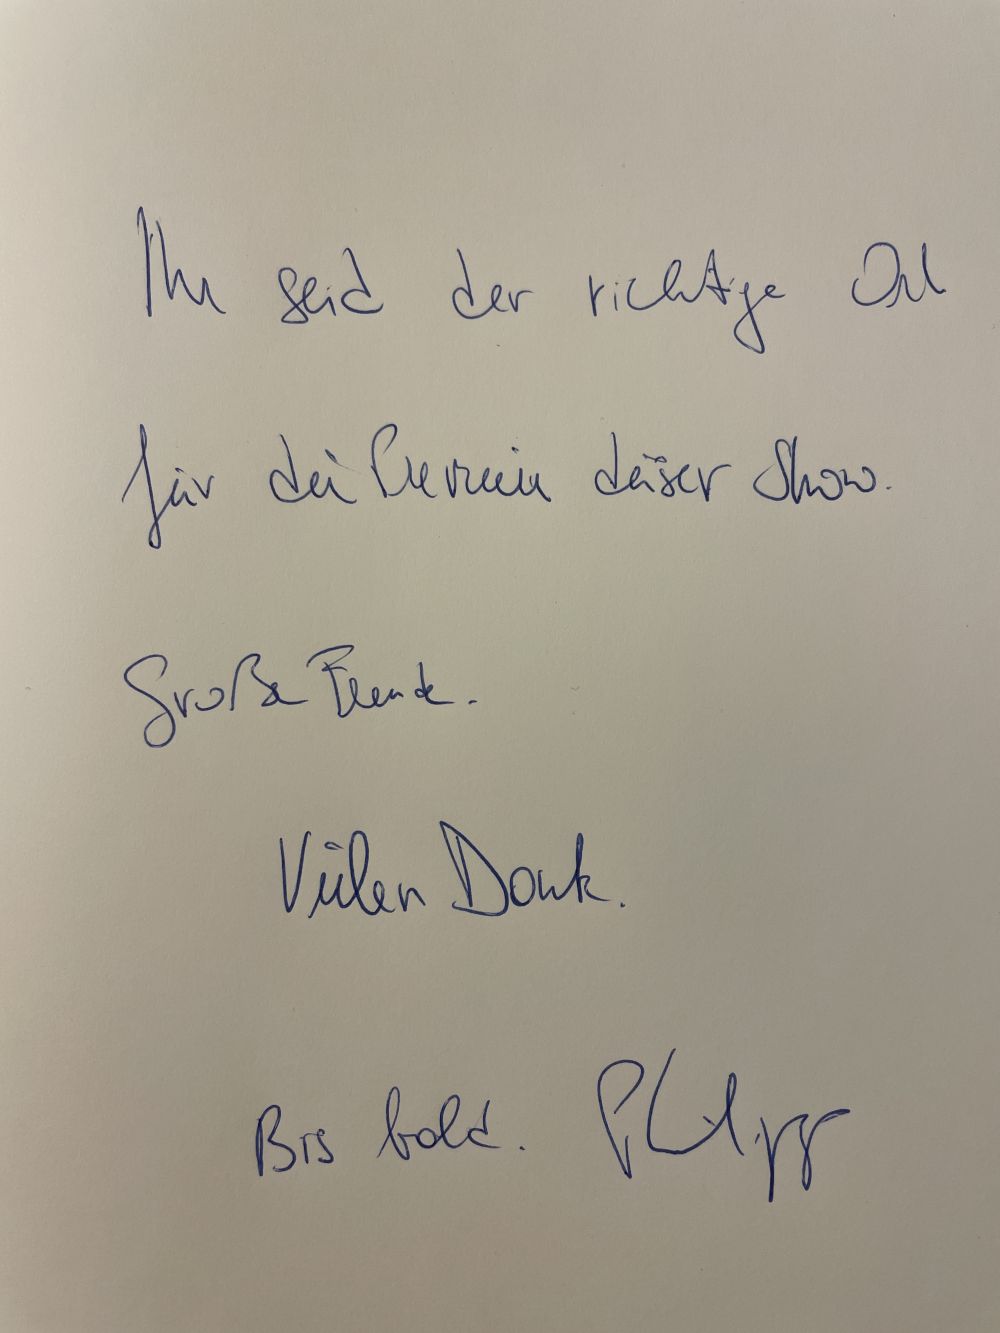 Ihr seid der richtige Ort
für die Premiere dieser Show.
Große Freude.
Vielen Dank.
Bis bald. Philipp